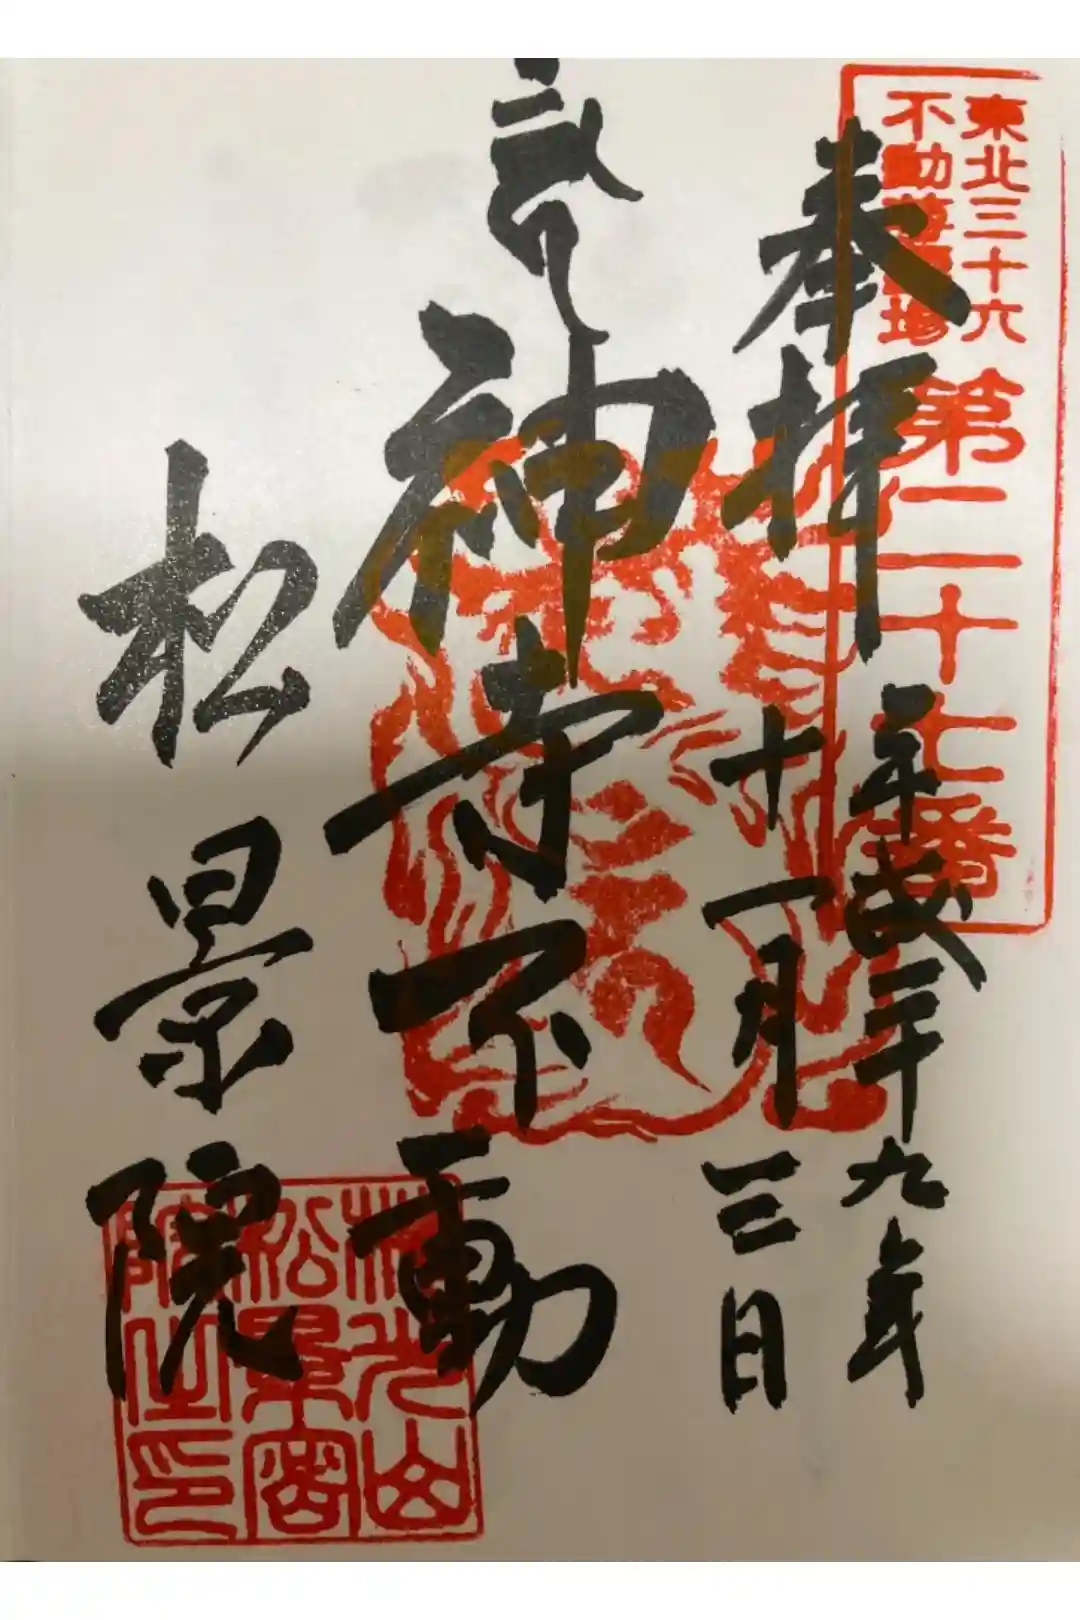 東北三十六
不動尊霊場
第二十七番
奉拝
平成二十九年
十一月三日
神寺不動
松景院